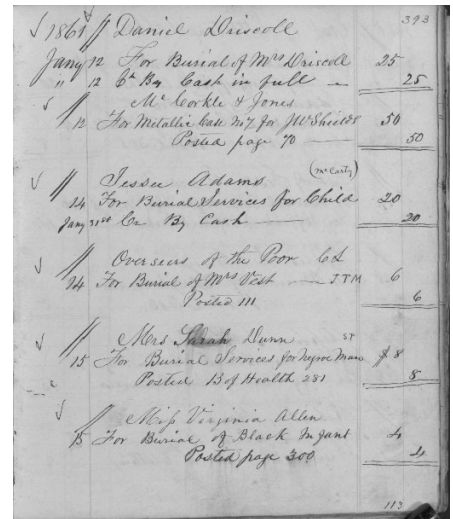 393
1861 // Daniel Driscoll
Jany 12 For Burial of Mrs Driscoll 25
" 12 Cr By Cash in full — 25
// Mc Corkle & Jones
12 For Metallic Case No 7 for J W Shields 50
Posted page 70 — 50
// Jessee Adams (McCarty)
14 For Burial Services for Child 20
Jany 31st Cr By Cash — 20
// Overseers of the Poor
14 For Burial of Mrs Vest — J T M 6
Posted 111 6
// Mrs Sarah Dunn
15 For Burial Services for Negroe Man $8
Posted B of Health 281 8
// Miss Virginia Allen
15 For Burial of Black Infant 4
Posted page 300 4
113